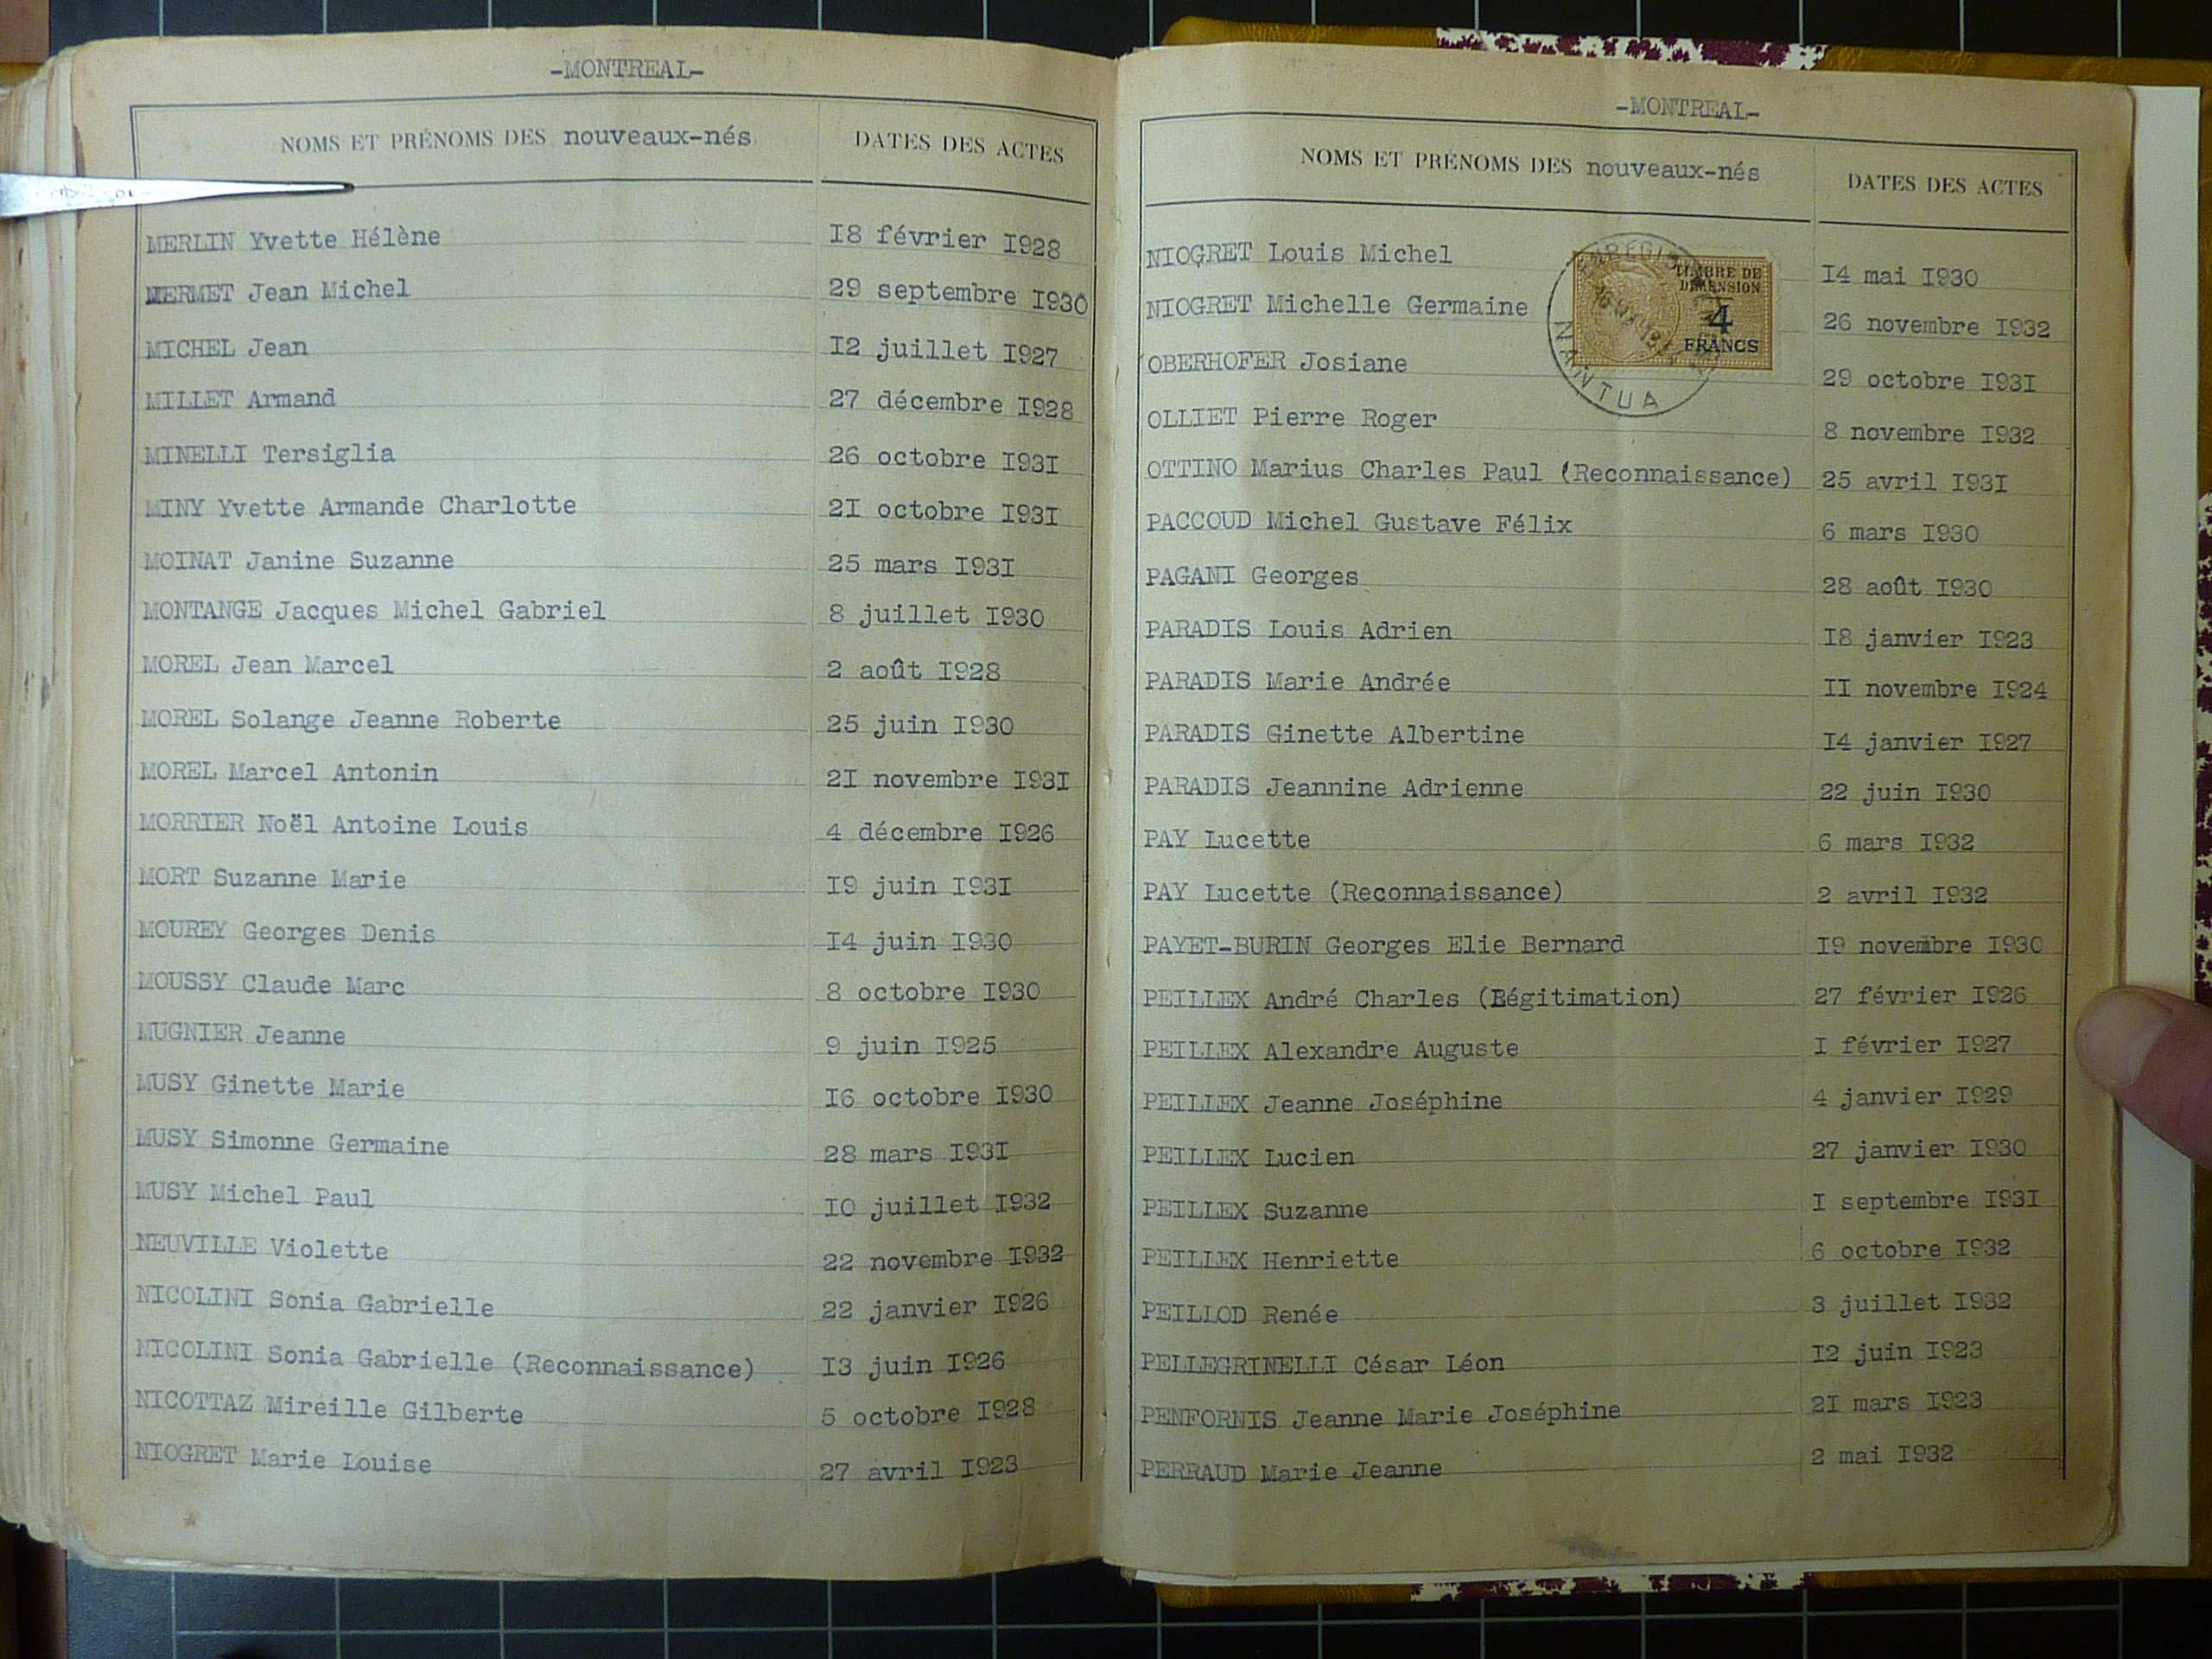 -MONTREAL-
NOMS ET PRÉNOMS DES nouveaux-nés DATES DES ACTES
MERLIN Yvette Hélène I8 février I928
MERMET Jean Michel 29 septembre I930
MICHEL Jean I2 juillet I927
MILLET Armand 27 décembre I928
MINELLI Tersiglia 26 octobre I93I
MINY Yvette Armande Charlotte 2I octobre I93I
MOINAT Janine Suzanne 25 mars I93I
MONTANGE Jacques Michel Gabriel 8 juillet I930
MOREL Jean Marcel 2 août I928
MOREL Solange Jeanne Roberte 25 juin I930
MOREL Marcel Antonin 2I novembre I93I
MORRIER Noël Antoine Louis 4 décembre I926
MORT Suzanne Marie I9 juin I93I
MOUREY Georges Denis I4 juin I930
MOUSSY Claude Marc 8 octobre I930
MUGNIER Jeanne 9 juin I925
MUSY Ginette Marie I6 octobre I930
MUSY Simonne Germaine 28 mars I93I
MUSY Michel Paul I0 juillet I932
NEUVILLE Violette 22 novembre I932
NICOLINI Sonia Gabrielle 22 janvier I926
NICOLINI Sonia Gabrielle (Reconnaissance) I3 juin I926
NICOTTAZ Mireille Gilberte 5 octobre I928
NIOGRET Marie Louise 27 avril I923
-MONTREAL-
NOMS ET PRÉNOMS DES nouveaux-nés DATES DES ACTES
NIOGRET Louis Michel I4 mai I930
NIOGRET Michelle Germaine 26 novembre I932
TIMBRE DE
DIMENSION
4
FRANCS
NANTUA
OBERHOFER Josiane 29 octobre I93I
OLLIET Pierre Roger 8 novembre I932
OTTINO Marius Charles Paul (Reconnaissance) 25 avril I93I
PACCOUD Michel Gustave Félix 6 mars I930
PAGANI Georges 28 août I930
PARADIS Louis Adrien I8 janvier I923
PARADIS Marie Andrée II novembre I924
PARADIS Ginette Albertine I4 janvier I927
PARADIS Jeannine Adrienne 22 juin I930
PAY Lucette 6 mars I932
PAY Lucette (Reconnaissance) 2 avril I932
PAYET-BURIN Georges Elie Bernard I9 novembre I930
PEILLEX André Charles (Légitimation) 27 février I926
PEILLEX Alexandre Auguste I février I927
PEILLEX Jeanne Joséphine 4 janvier I929
PEILLEX Lucien 27 janvier I930
PEILLEX Suzanne I septembre I93I
PEILLEX Henriette 6 octobre I932
PEILLOD Renée 3 juillet I932
PELLEGRINELLI César Léon I2 juin I923
PENFORNIS Jeanne Marie Joséphine 2I mars I923
PERRAUD Marie Jeanne 2 mai I932